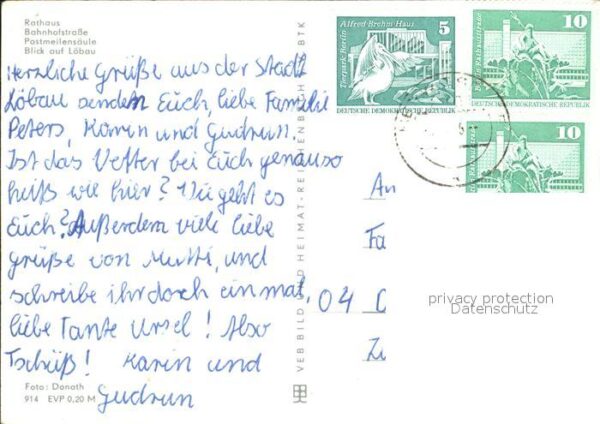 Rathaus
Bahnhofstraße
Postmeilensäule
Blick auf Löbau
Herzliche Grüße aus der Stadt
Löbau senden Euch, liebe Familie
Peters, Karin und Gudrun.
Ist das Wetter bei Euch genauso
heiß wie hier? Wie geht es
Euch? Außerdem viele liebe
grüße von Mutti, und
schreibe ihr doch ein mal,
liebe Tante Ursel! Also
Tschüß! Karin und
Gudrun
Foto: Donath
914 EVP 0,20 M
VEB BILD UND HEIMAT · REICHENBACH BTK
Alfred-Brehm-Haus
5
Tierpark Berlin
DEUTSCHE DEMOKRATISCHE REPUBLIK
10
DEUTSCHE DEMOKRATISCHE REPUBLIK
10
An
Fa
04 C
Zi
privacy protection
Datenschutz